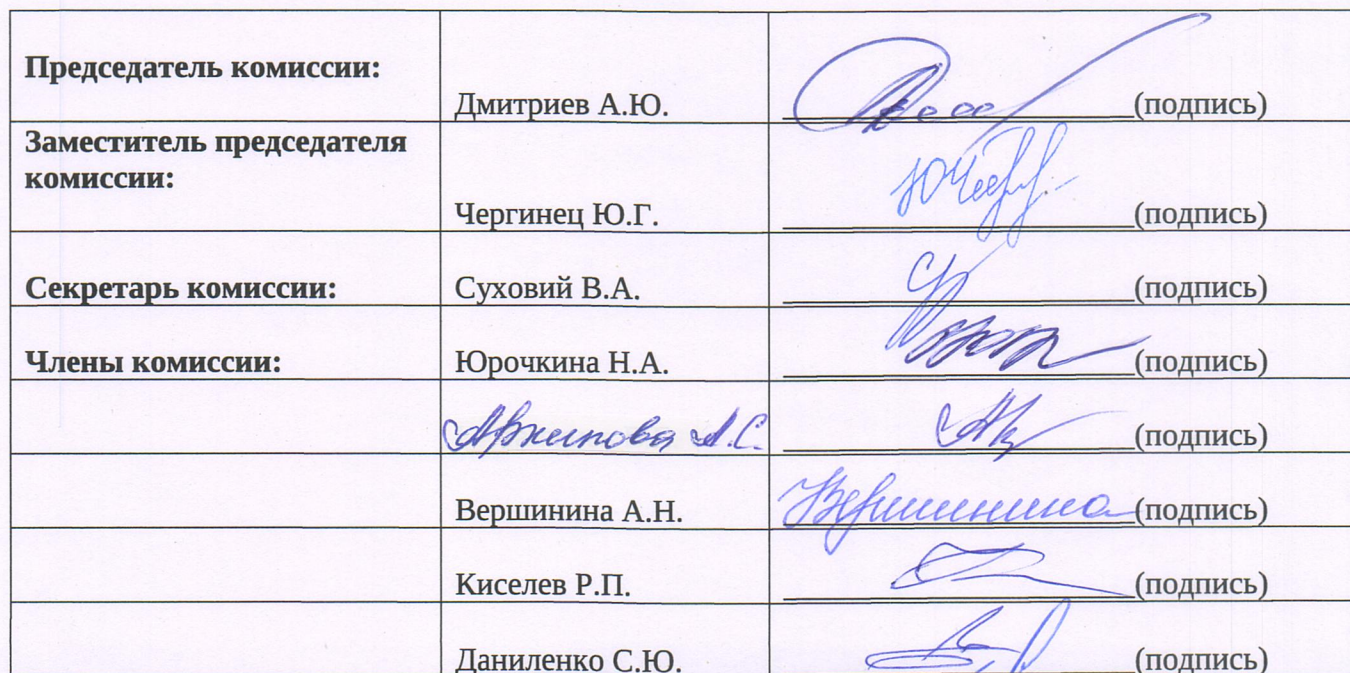 Председатель комиссии:
Дмитриев А.Ю. (подпись)
Заместитель председателя
комиссии:
Чергинец Ю.Г. (подпись)
Секретарь комиссии: Суховий В.А. (подпись)
Члены комиссии: Юрочкина Н.А. (подпись)
А.С. (подпись)
Вершинина А.Н. Вершинина (подпись)
Киселев Р.П. (подпись)
Даниленко С.Ю. (подпись)